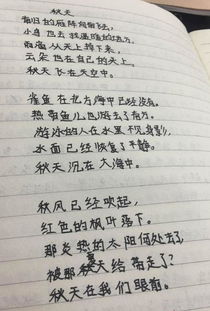 秋天
南归的雁阵向南飞去,
小鸟也去找温暖的地方。
雨滴从天上掉下来,
云朵也在自己的头上,
秋天飞在天空中。
雀鱼在北方海中已经没有。
热带鱼儿也游去了南方。
游泳的人在水里不见身影,
水面已经恢复了平静。
秋天沉在大海中。
秋风已经吹起,
红色的枫叶落下。
那炎热的太阳何处去了,
被那秋天给带走了?
秋天在我们眼前。